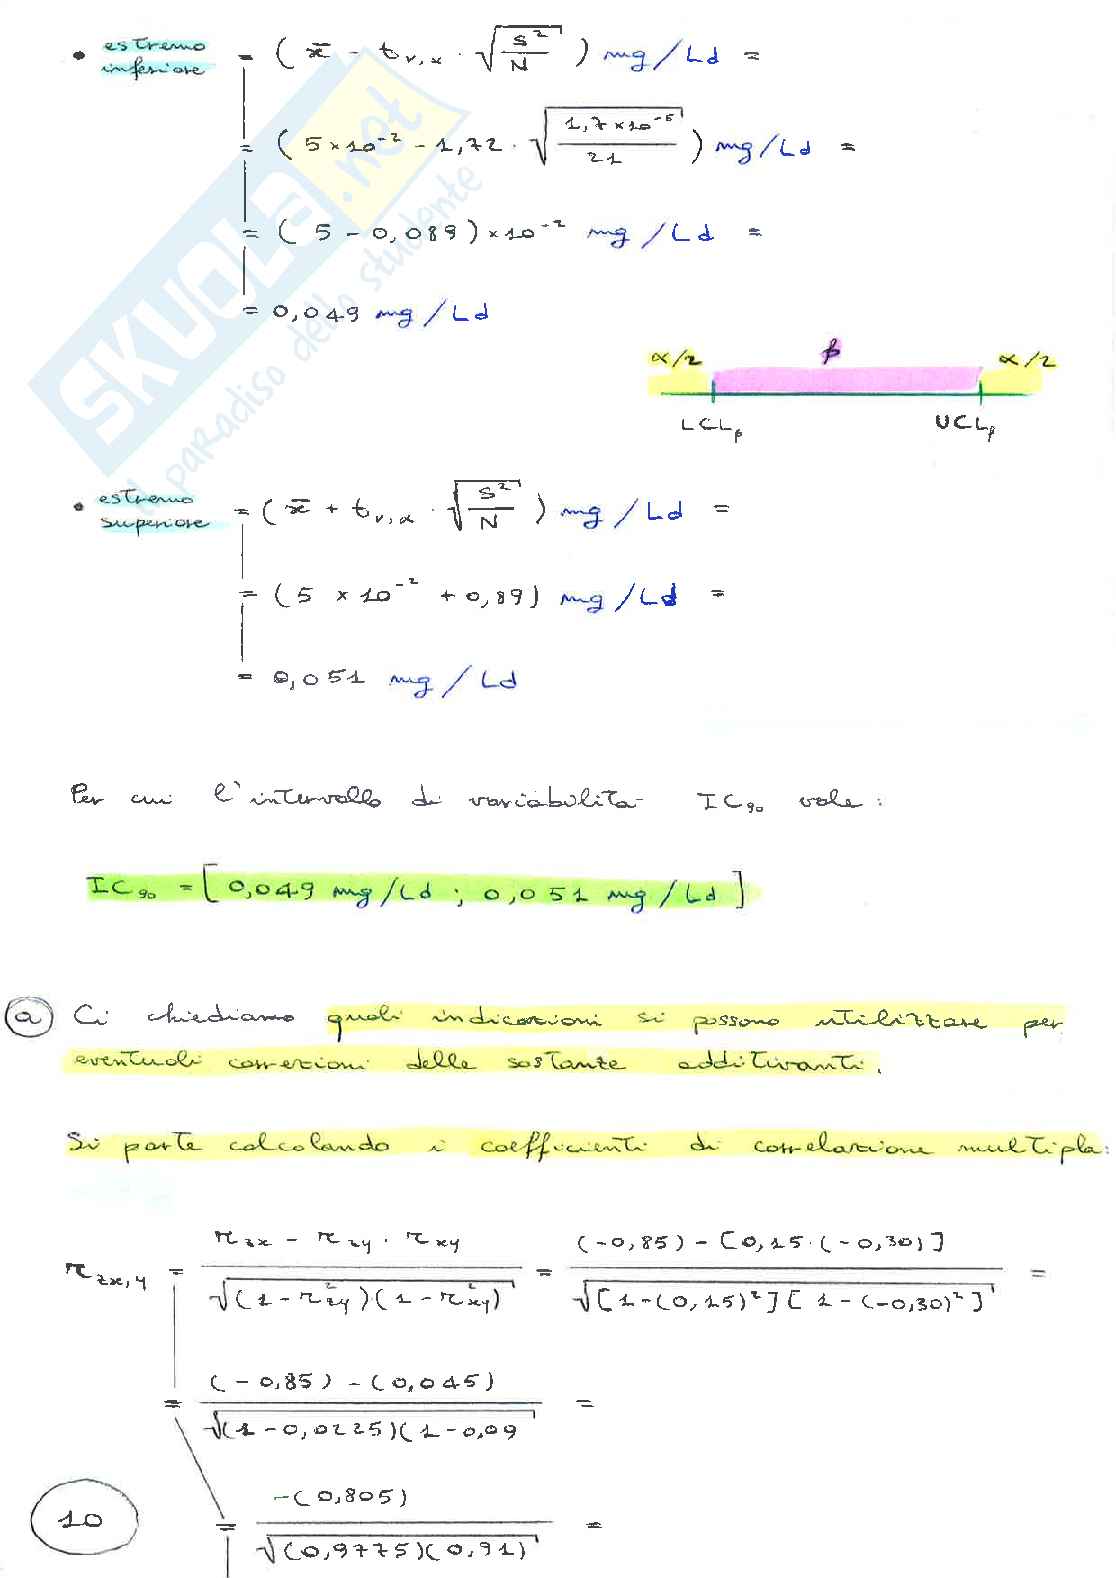 • estremo inferiore = ( x̄ - t_{ν,α} · √(s²/N) ) mg/Ld =
= ( 5×10⁻² - 1,72 · √(1,7×10⁻⁵/21) ) mg/Ld =
= ( 5 - 0,089 ) ×10⁻² mg/Ld =
= 0,049 mg/Ld
α/2 β α/2
LCLᵦ UCLᵦ
• estremo superiore = ( x̄ + t_{ν,α} · √(s²/N) ) mg/Ld =
= ( 5 × 10⁻² + 0,89 ) mg/Ld =
= 0,051 mg/Ld
Per cui l'intervallo di variabilità IC₉₀ vale:
IC₉₀ = [ 0,049 mg/Ld ; 0,051 mg/Ld ]
ⓐ Ci chiediamo quali indicazioni si possono utilizzare per
eventuali correzioni delle sostanze additivanti.
Si parte calcolando i coefficienti di correlazione multipla:
r_{zx,y} = (r_{zx} - r_{zy} · r_{xy}) / √((1-r²_{zy})(1-r²_{xy})) = ((-0,85) - [0,15·(-0,30)]) / √([1-(0,15)²][1-(-0,30)²]) =
= ((-0,85) - (0,045)) / √((1-0,0225)(1-0,09) =
= -(0,805) / √((0,9775)(0,91)) =
10
SKUOLA.net
il paradiso dello studente